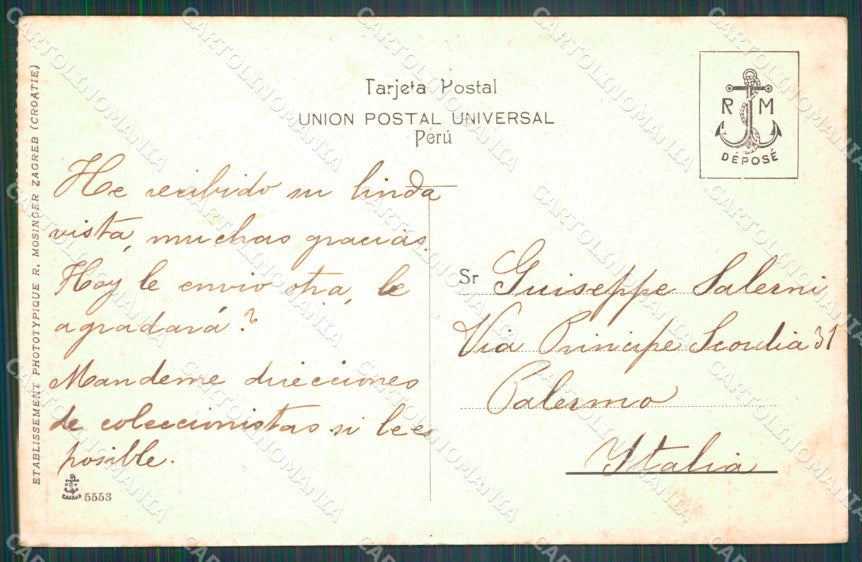 Tarjeta Postal
UNION POSTAL UNIVERSAL
Perú
R M
DÉPOSÉ
He recibido su linda
vista, muchas gracias.
Hoy le envio otra, le
agradará?
Mandeme direcciones
de coleccionistas si le es
posible.
Sr Guiseppe Salerni
Via Principe Scordia 31
Palermo
Italia
ETABLISSEMENT PHOTOTYPIQUE R. MOSINGER ZAGREB (CROATIE)
ZAGREB 5553
CARTOLINOMANIA